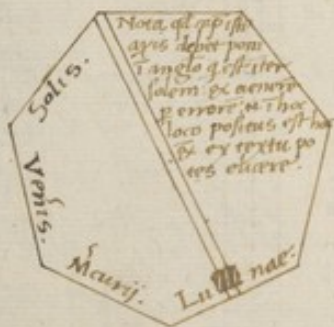 Nota qd pp isti
axis debet poni
i anglo q est iter
solem & venere
p errore ut i hoc
loco positus est hoc
ex textu po
tes elicere.
Solis.
Veneris.
Mercurij.
Lunae: